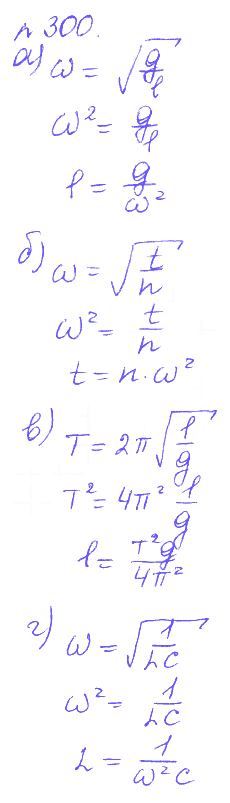 № 300.
а) ω = √(g/l)
ω² = g/l
l = g/ω²
б) ω = √(t/n)
ω² = t/n
t = n·ω²
в) T = 2π√(l/g)
T² = 4π² l/g
l = T²g/4π²
г) ω = √(1/LC)
ω² = 1/LC
L = 1/ω²C